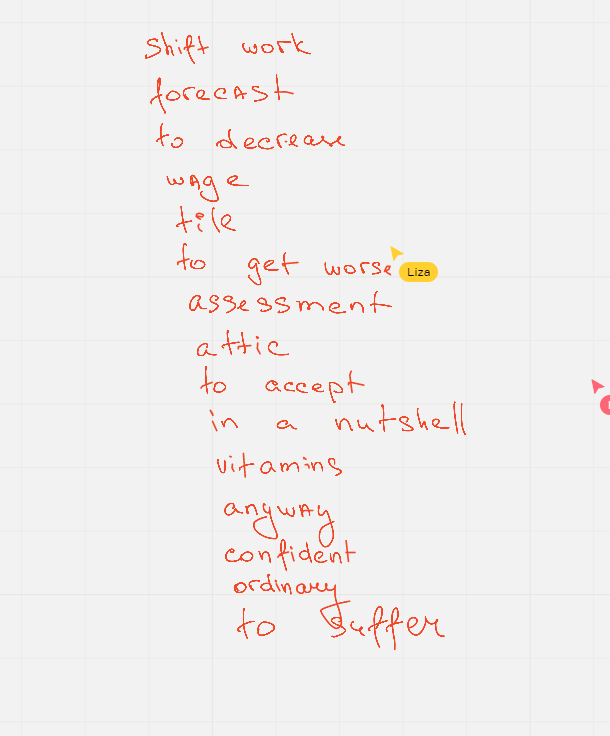 Shift work
forecast
to decrease
wage
tile
to get worse
Liza
assessment
attic
to accept
in a nutshell
vitamins
anyway
confident
ordinary
to suffer